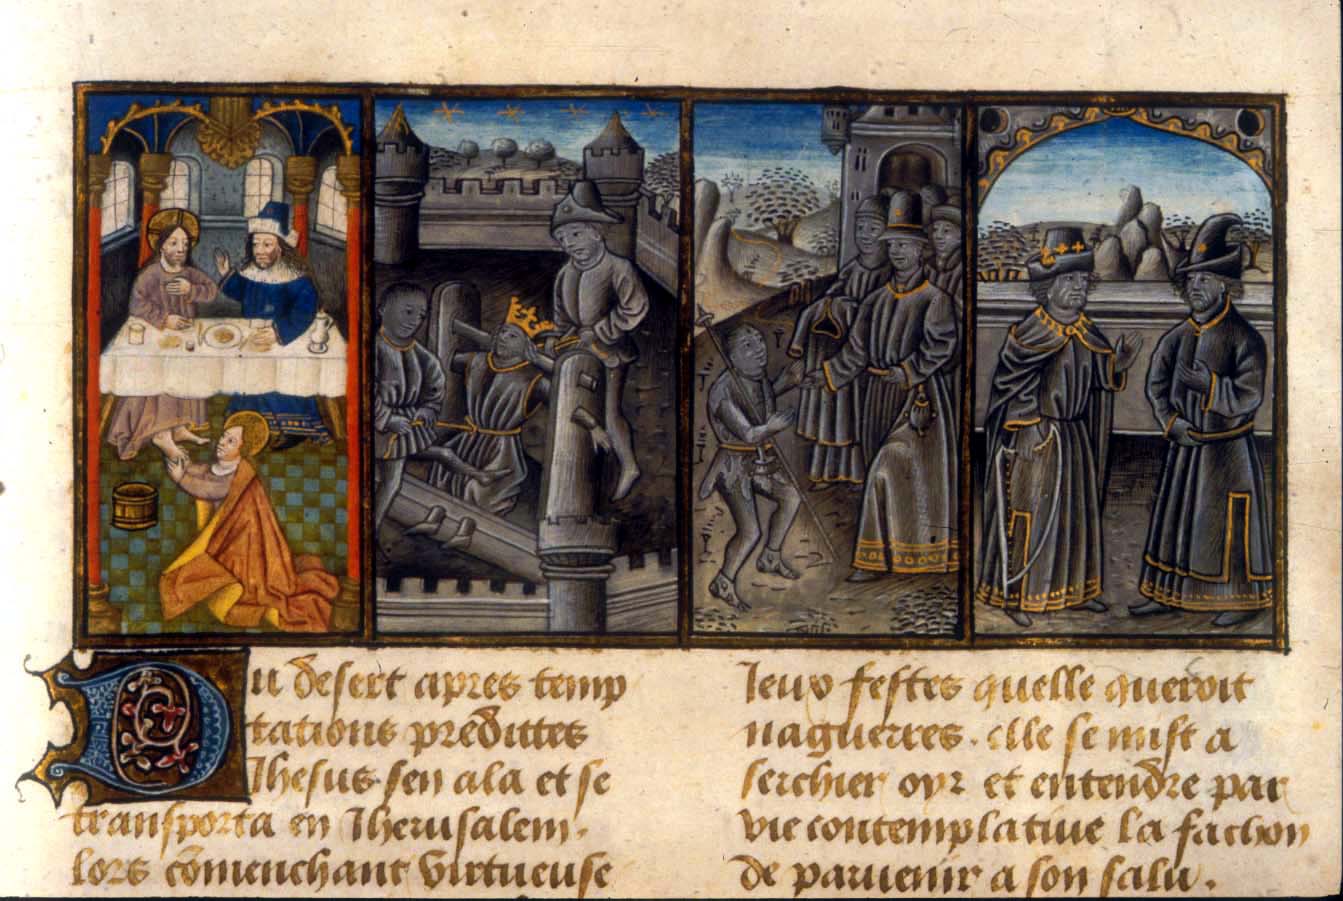 Du desert apres temp
tations predittes
Jhesus sen ala et se
transporta en Jherusalem.
lors cōmenchant virtueuse
Jeux festes quelle queroit
naguerres. elle se mist a
serchier oyr et entendre par
vie contemplatiue la fachon
de paruenir a son salu.